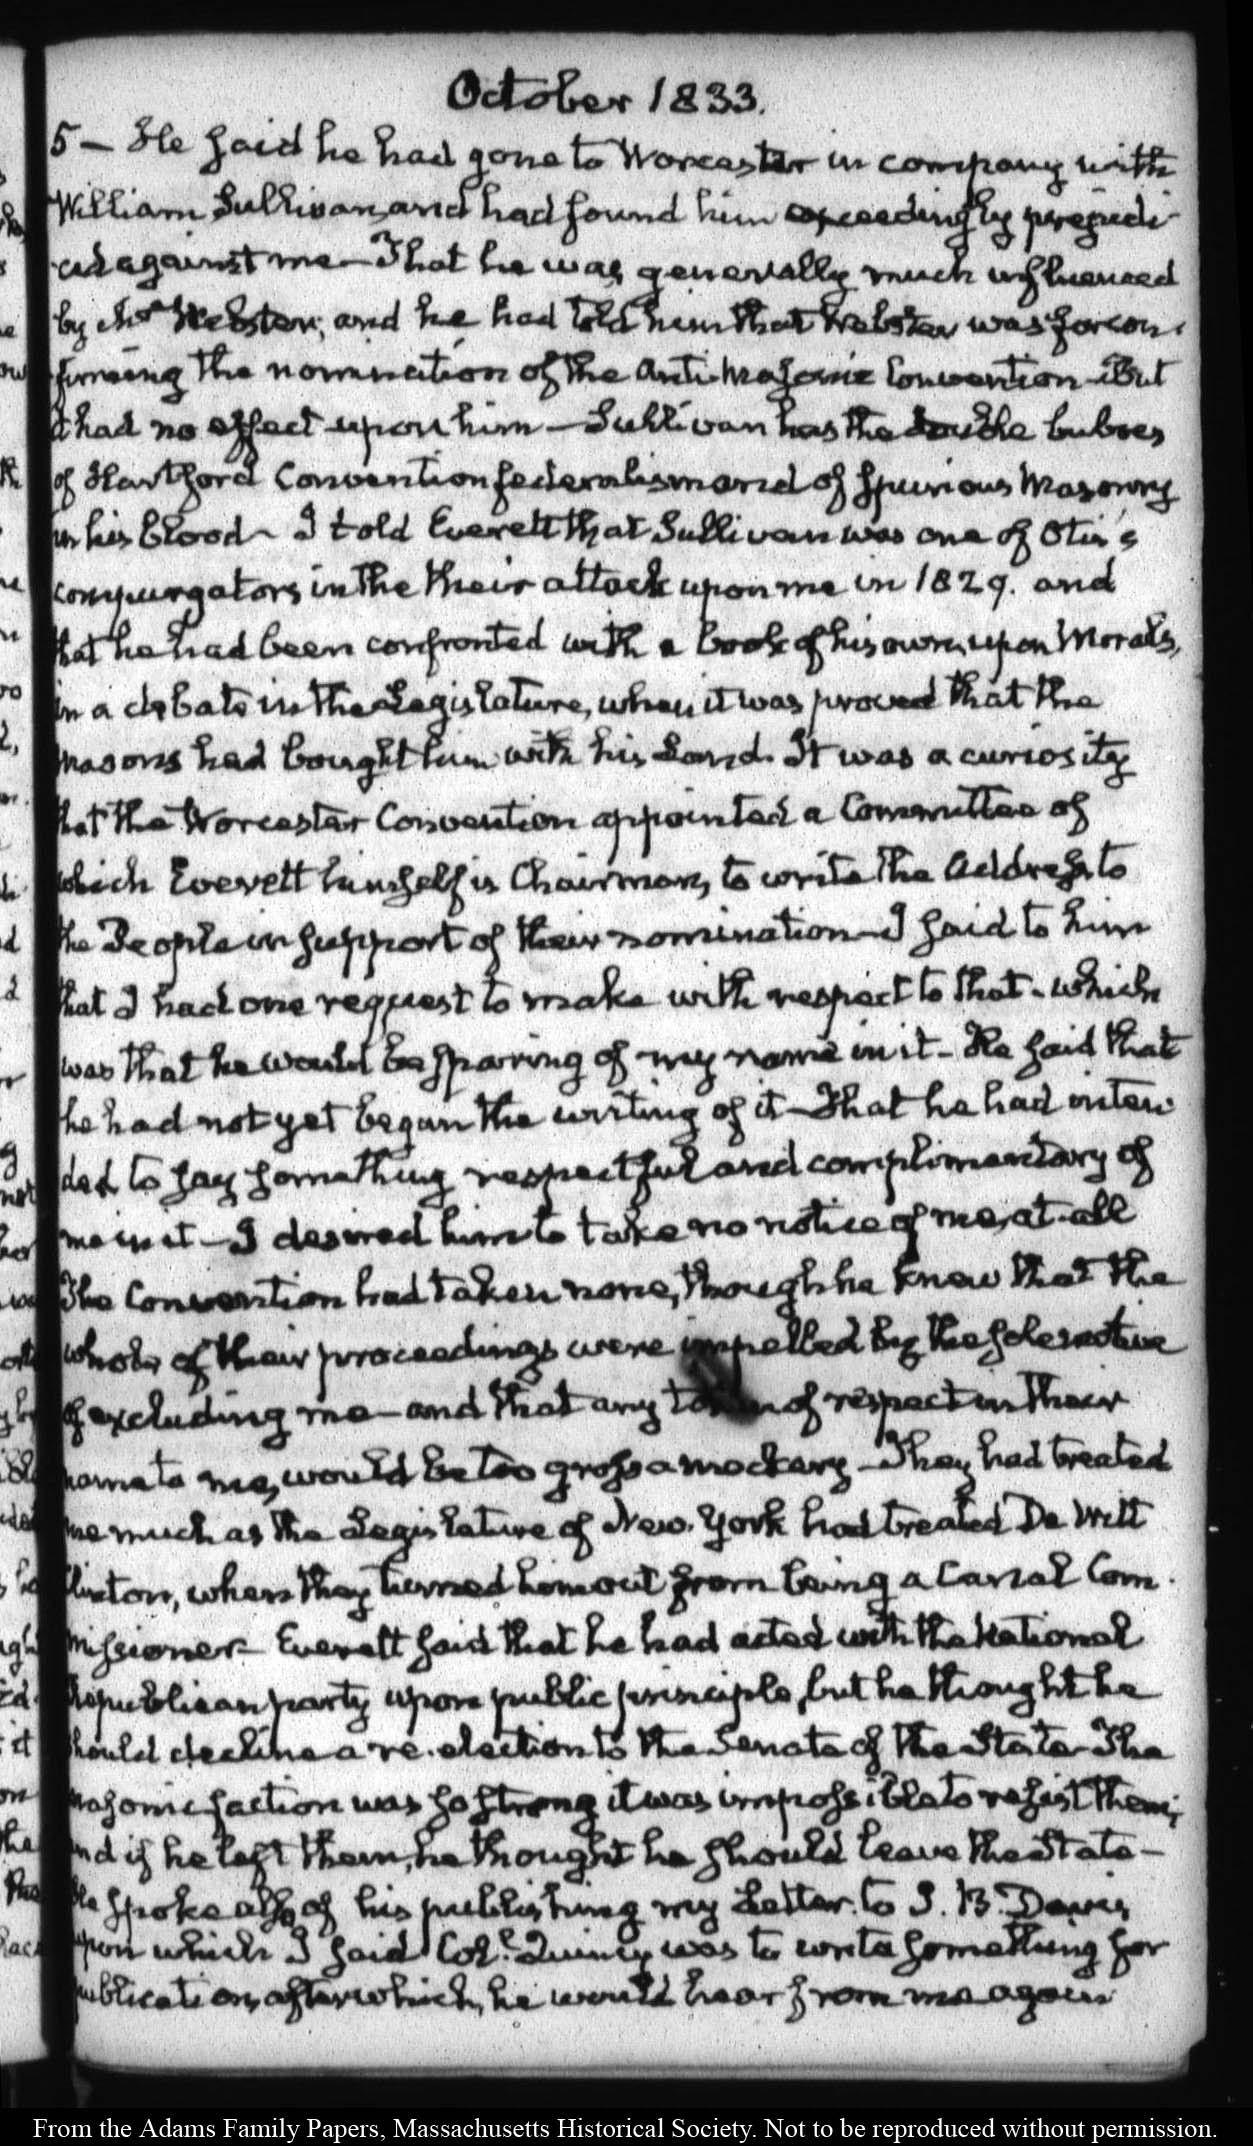 October 1833.
5 — He said he had gone to Worcester in company with
William Sullivan, and had found him exceedingly prejudi-
ced against me — That he was generally much influenced
by Mr Webster, and he had told him that Webster was for con-
firming the nomination of the Anti-Masonic Convention — But
it had no effect upon him — Sullivan has the double buboes
of Hartford Convention federalism and of spurious Masonry
in his blood — I told Everett that Sullivan was one of Otis's
compurgators in the their attack upon me in 1829. and
that he had been confronted with a book of his own, upon Morals,
in a debate in the Legislature, when it was proved that the
masons had bought him with his Land. It was a curiosity
that the Worcester Convention appointed a Committee of
which Everett himself is Chairman, to write the Address to
the People in support of their nomination — I said to him
that I had one request to make with respect to that — which
was that he would be sparing of my name in it — He said that
he had not yet begun the writing of it — That he had inten-
ded to say something respectful and complimentary of
me in it — I desired him to take no notice of me, at all
The Convention had taken none, though he knew that the
whole of their proceedings were impelled by the sole motive
of excluding me — and that any token of respect in their
name to me, would be too gross a mockery — They had treated
me much as the Legislature of New-York had treated De Witt
Clinton, when they turned him out from being a Canal Com-
missioner — Everett said that he had acted with the National
Republican party upon public principle, but he thought he
should decline a re-election to the Senate of the State — The
masonic faction was so strong it was impossible to resist them;
and if he left them, he thought he should leave the State —
He spoke also of his publishing my Letter to J. B. Davis
upon which I said Col. Quincy was to write something for
publication, after which, he would hear from me again
From the Adams Family Papers, Massachusetts Historical Society. Not to be reproduced without permission.